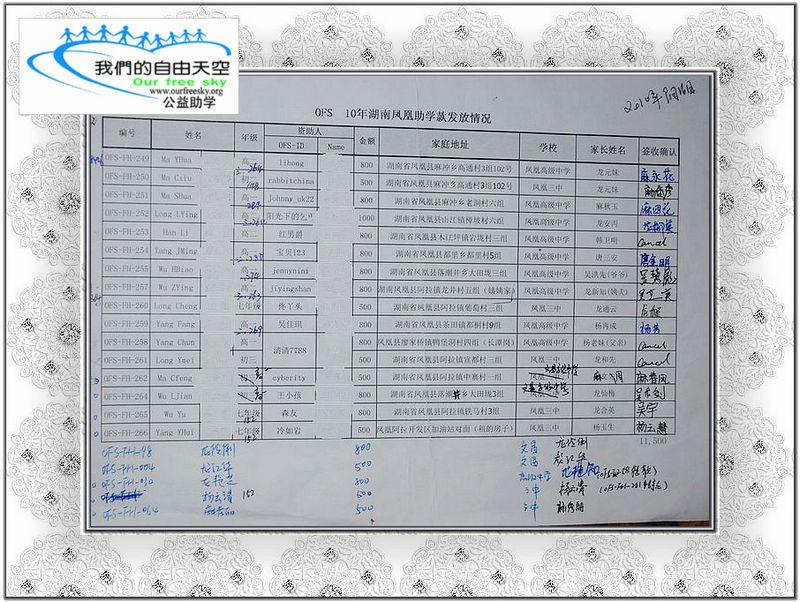 我們的自由天空
Our free sky
www.ourfreesky.org
公益助学
2010年9月16日
OFS 10年湖南凤凰助学款发放情况
编号 姓名 年级 资助人 金额 家庭地址 学校 家长姓名 签收确认
OFS-ID Name
OFS-FH-249 Ma YHua 高一 lihong 800 湖南省凤凰县麻冲乡高通村3组102号 凤凰高级中学 龙元妹 麻永花
OFS-FH-250 Ma Cxiu 初一 rabbitchina 500 湖南省凤凰县麻冲乡高通村3组102号 凤凰三中 龙元妹
OFS-FH-251 Ma SHua 高一 Johnny_uk22 800 湖南省凤凰县麻冲乡老洞村六组 凤凰高级中学 麻秋玉 麻四花
OFS-FH-252 Long LYing 高一 阳光下的乞丐 1000 湖南省凤凰县山江镇樟坡村六组 凤凰高级中学 龙安丙
OFS-FH-253 Han Li 高二 红男爵 800 湖南省凤凰县木江坪镇岩垅村三组 凤凰高级中学 韩卫明 Cancel
OFS-FH-254 Tang JMing 高一 宝贝123 800 湖南省凤凰县都里乡都里村5组 凤凰高级中学 唐三安 唐金明
OFS-FH-255 Wu HBiao 高一 jennynini 800 湖南省凤凰县落潮井乡大田垅三组 凤凰高级中学 吴洪先(爷爷)
OFS-FH-257 Wu ZYing 高一 jiyingshan 800 湖南省凤凰县阿拉镇龙井村五组(姨姨家) 凤凰高级中学 龙新如(姨夫)
OFS-FH-260 Long Cheng 七年级 佟丫头 500 湖南省凤凰县阿拉镇葡萄村三组 凤凰三中 龙通云
OFS-FH-259 Yang Fang 高一 吴佳琪 800 湖南省凤凰县茶田镇都桐村9组 凤凰高级中学 杨再成 杨芳
OFS-FH-258 Yang Chun 高一 清清7788 800 凤凰县廖家桥镇鸭堡洞村四组(长潭岗) 凤凰高级中学 杨老妹(父亲) Cancel
OFS-FH-261 Long Ymei 初三 500 湖南省凤凰县阿拉镇宜都村三组 凤凰三中 龙和先 Cancel
OFS-FH-262 Ma Cfeng cyberity 500 湖南省凤凰县阿拉镇中寨村一组 麻春凤
OFS-FH-264 Wu LJian 王小孩 500 湖南省凤凰县落潮井乡大田垅3组 龙仙梅 吴金剑
OFS-FH-265 Wu Yu 七年级 森友 500 湖南省凤凰县阿拉镇铁马村3组 凤凰三中 龙合英 吴宇
OFS-FH-266 Yang YHui 七年级 冷如岩 500 凤凰阿拉开发区加油站对面(租的房子) 凤凰三中 杨玉生 杨云慧
11,500
OFS-FH-198 800 文昌
OFS-FH-004 龙江华 500 文昌 龙江华
OFS-FH-030 800
杨云清 152 500 三中 杨云清
OFS-FH-064 500 三中